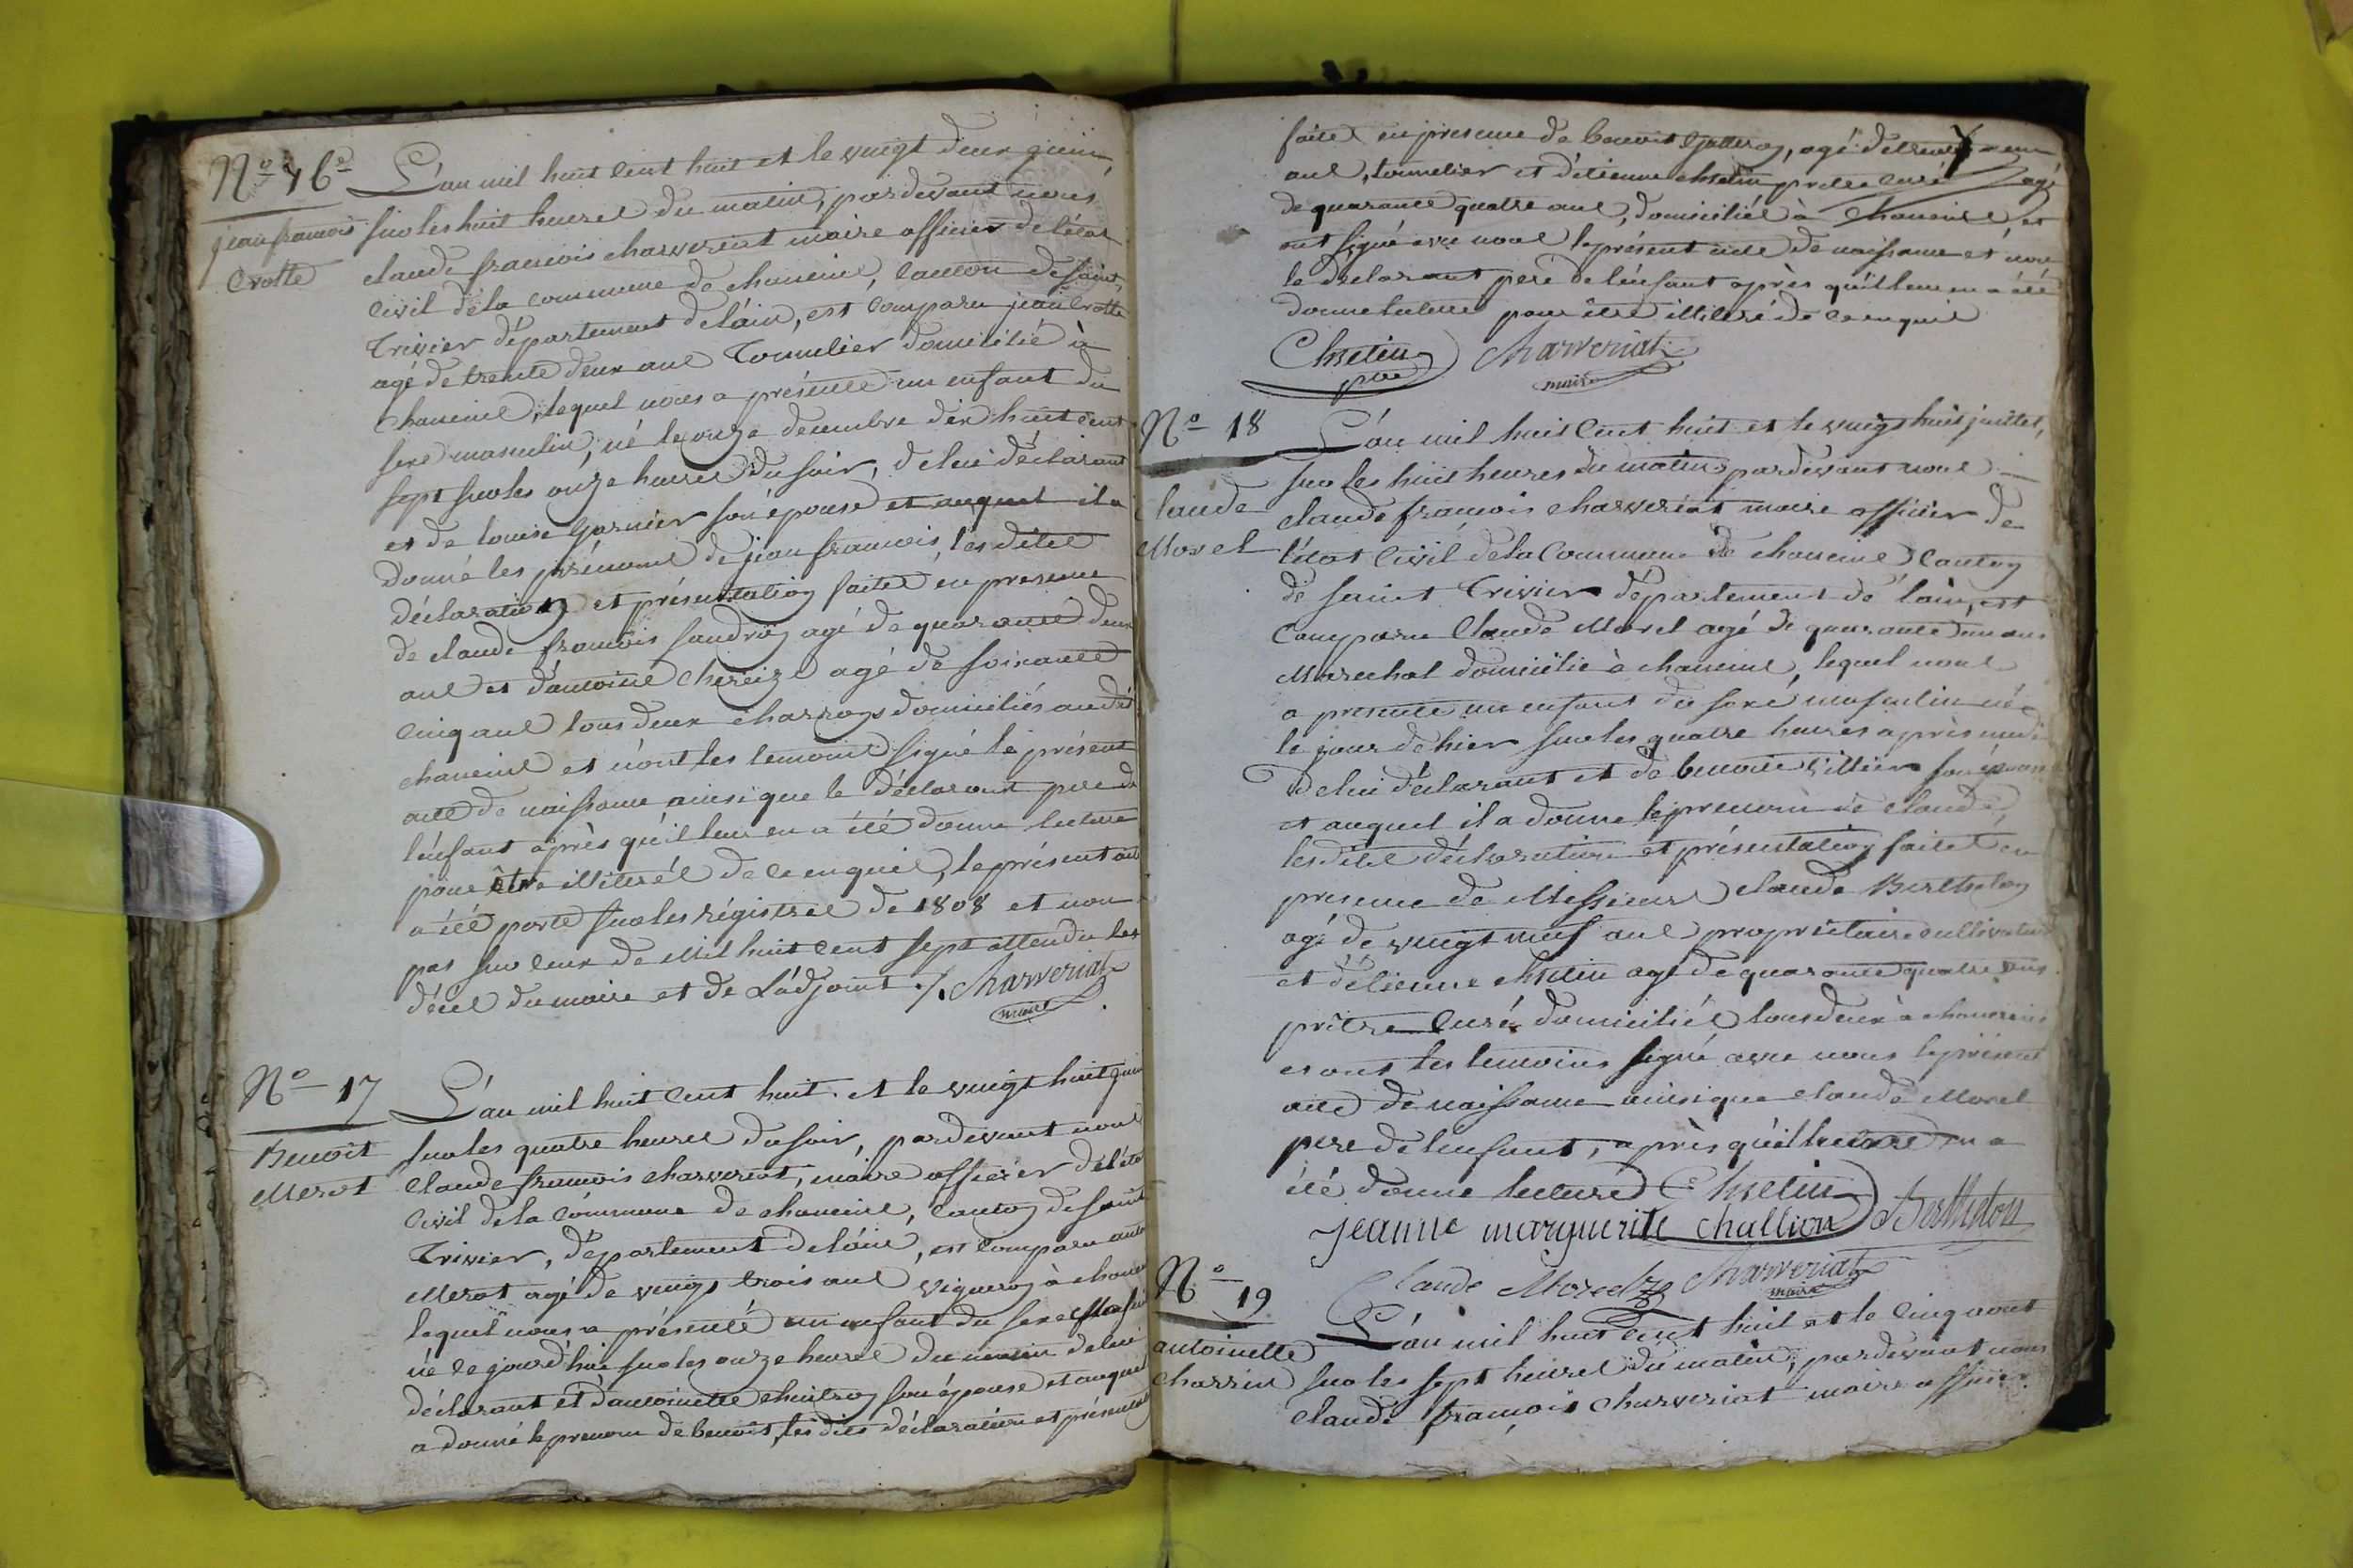 No 16e
jean francois
Crotte
L'an mil huit Cent huit et le vingt deux juin,
sur les huit heures du matin, pardevant nous
claude francois charveriat maire officier de l'état
civil de la commune de chaneins, canton de saint
Trivier département de l'ain, est comparu jean Crotte
agé de trente deux ans Tonnelier domicilié à
chaneins, lequel nous a présenté un enfant du
sexe masculin, né le onze decembre dix huit cent
sept sur les onze heures du soir, de lui déclarant
et de louise Garnier son épouse et auquel il a
donné les prénoms de jean francois, les dites
déclaration et présentation faites en presence
de claude francois sandron agé de quarante deux
ans et d'antoine chereize agé de soixante
cinq ans tous deux charrons domiciliés audit
chaneins et n'ont les temoins signé le présent
acte de naissance ainsi que le déclarant pere de
l'enfant après qu'il leur en a été donné lecture
pour être illiterés de ce enquis, le présent acte
a été porté sur les régistres de 1808 et non
pas sur ceux de Mil huit cent sept attendu les
décès du maire et de L'adjoint ./. Charveriat
maire
No 17
Benoit
Merat
L'an mil huit Cent huit et le vingt huit juin
sur les quatre heures du soir, pardevant nous
Claude francois charveriat, maire officier de l'état
Civil de la commune de chaneins, canton de saint
Trivier, département de l'ain, est comparu
Merat agé de vingt trois ans vigneron à
lequel nous a présenté un enfant du sexe
né ce jourd'hui sur les onze heures du matin de lui
déclarant et d'antoinette son épouse et auquel
a donné le prenom de benoit, les dites déclaration et présentation
faites en presence de benoit agé de trente
ans, tonnelier et d'étienne chretin pretre curé agé
de quarante quatre ans, domiciliés à chaneins, et
ont signé avec nous le présent acte de naissance et non
le declarant pere de l'enfant après qu'il leur en a été
donné lecture pour être illiteré de ce enquis
Chretin Charveriat
ptre maire
No 18
Claude
Morel
L'an mil huit Cent huit et le vingt huit juillet,
sur les huit heures du matin pardevant nous
claude francois charveriat maire officier de
l'état Civil de la Commune de chaneins Canton
de saint Trivier département de l'ain, est
comparu Claude Morel agé de quarante un ans
Marechal domicilié à chaneins, lequel nous
a presenté un enfant du sexe masculin né
le jour de hier sur les quatre heures après midi
de lui déclarant et de benoite son épouse
et auquel il a donné le prenom de claude,
les dites déclaration et présentation faites en
presence de Messieurs claude Berthelon
agé de vingt neuf ans propriétaire cultivateur
et d'étienne chretin agé de quarante quatre ans
prêtre curé domiciliés tous deux à chaneins
et ont les temoins signé avec nous le présent
acte de naissance ainsi que claude Morel
pere de l'enfant, après qu'il leur en a
été donné lecture Chretin
jeanne marguerite challion Berthelon
Claude Morel Charveriat
maire
No 19
antoinette
L'an mil huit cent huit et le cinq aout
sur les sept heures du matin, pardevant nous
Claude françois charveriat maire officier